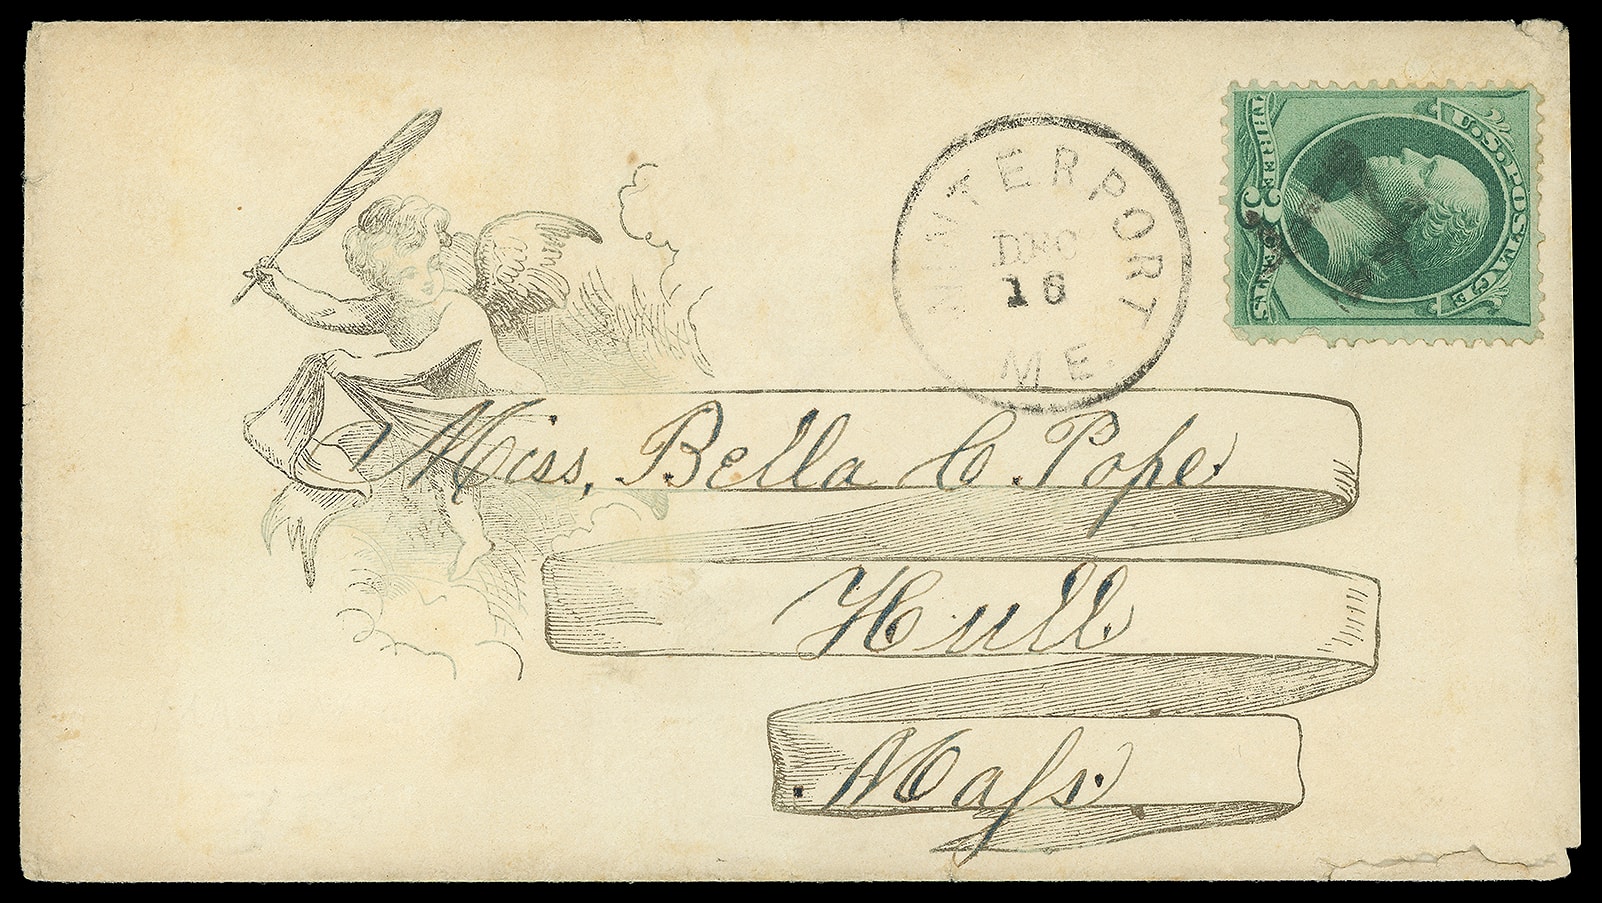 WINTERPORT
DEC
16
ME.
U.S. POSTAGE
THREE 3 CENTS
Miss, Bella C. Pope.
Hull.
Maſs.